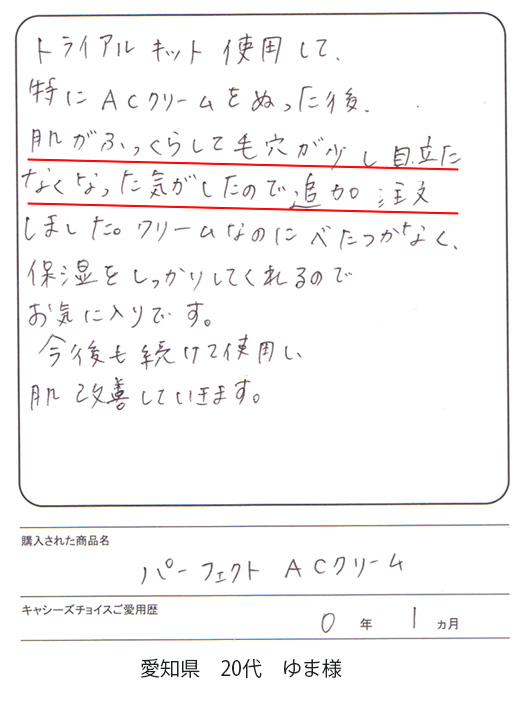 トライアルキット使用して、
特にACクリームをぬった後、
肌がふっくらして毛穴が少し目立た
なくなった気がしたので追加注文
しました。クリームなのにべたつかなく、
保湿をしっかりしてくれるので
お気に入りです。
今後も続けて使用し、
肌改善していきます。
購入された商品名
パーフェクト ACクリーム
キャシーズチョイスご愛用歴
0 年 1 ヵ月
愛知県 20代 ゆま様